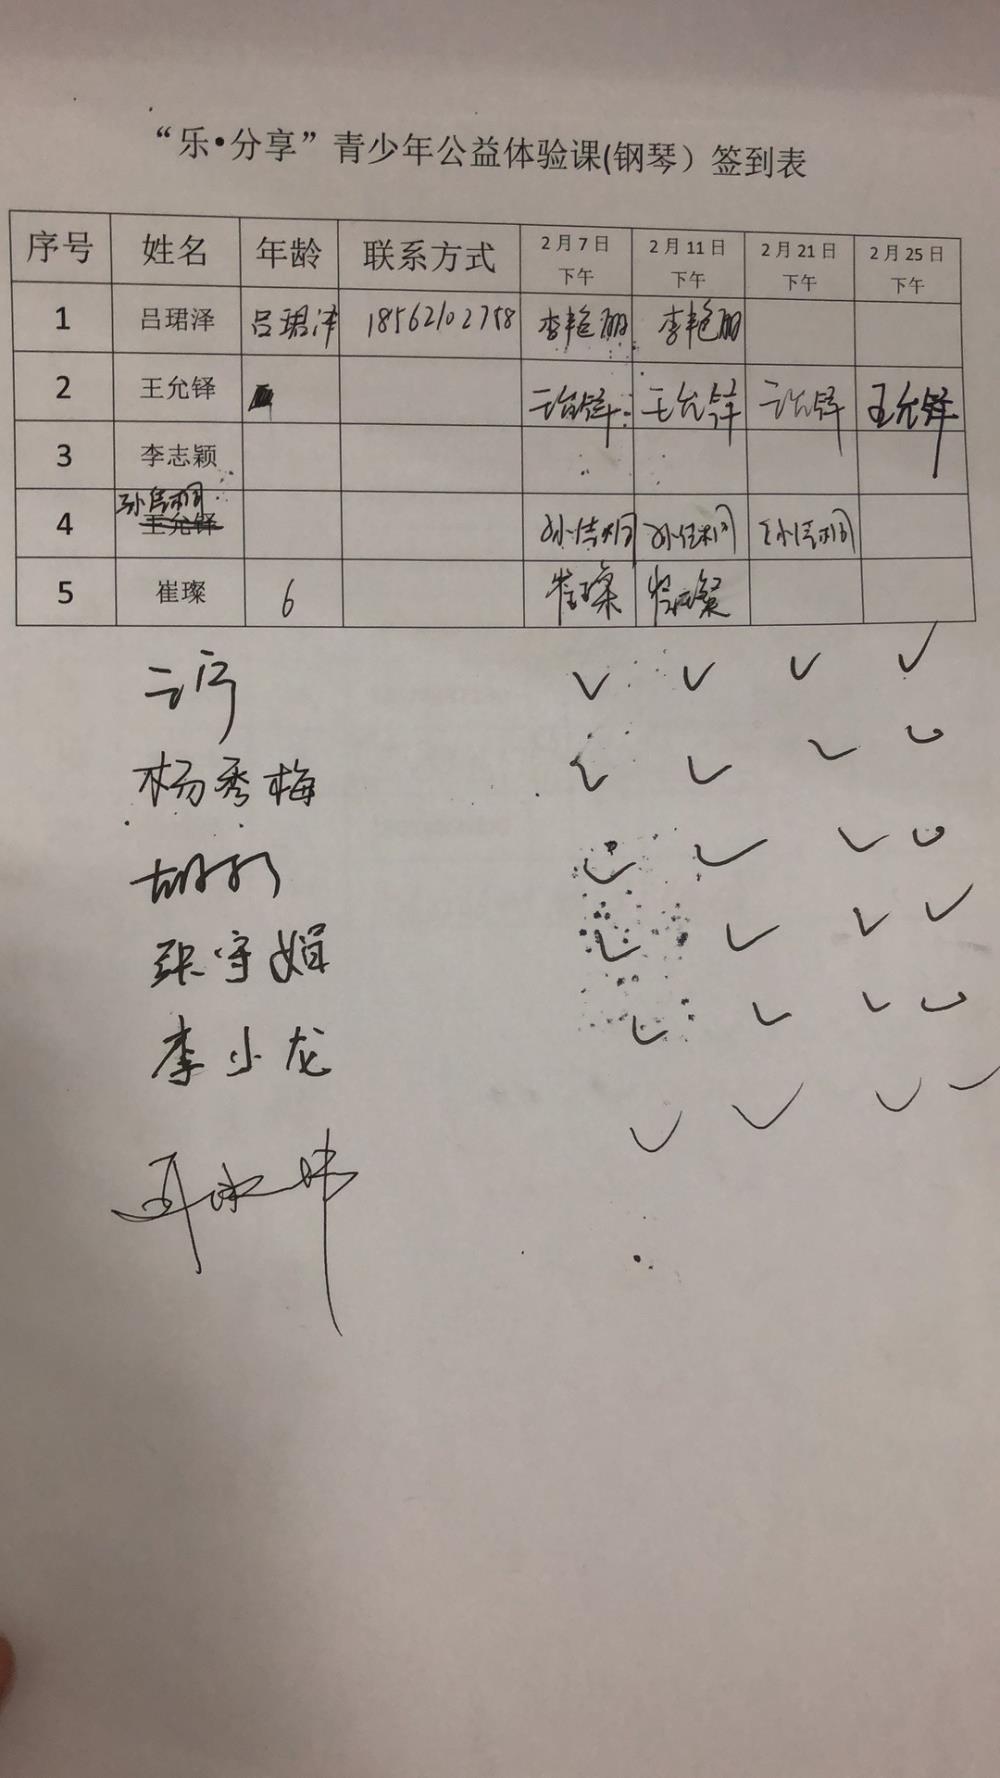 “乐•分享”青少年公益体验课(钢琴）签到表
序号 姓名 年龄 联系方式 2月7日下午 2月11日下午 2月21日下午 2月25日下午
1 吕珺泽 吕珺泽 18562102758 李艳丽 李艳丽
2 王允铎 王允铎 王允铎 王允铎 王允铎
3 李志颖
4 王允铎
5 崔璨 6 崔璨 崔璨
✓ ✓ ✓ ✓
杨秀梅 ✓ ✓ ✓ ✓
✓ ✓ ✓ ✓
张守娟 ✓ ✓ ✓ ✓
李小龙 ✓ ✓ ✓ ✓
✓ ✓ ✓ ✓